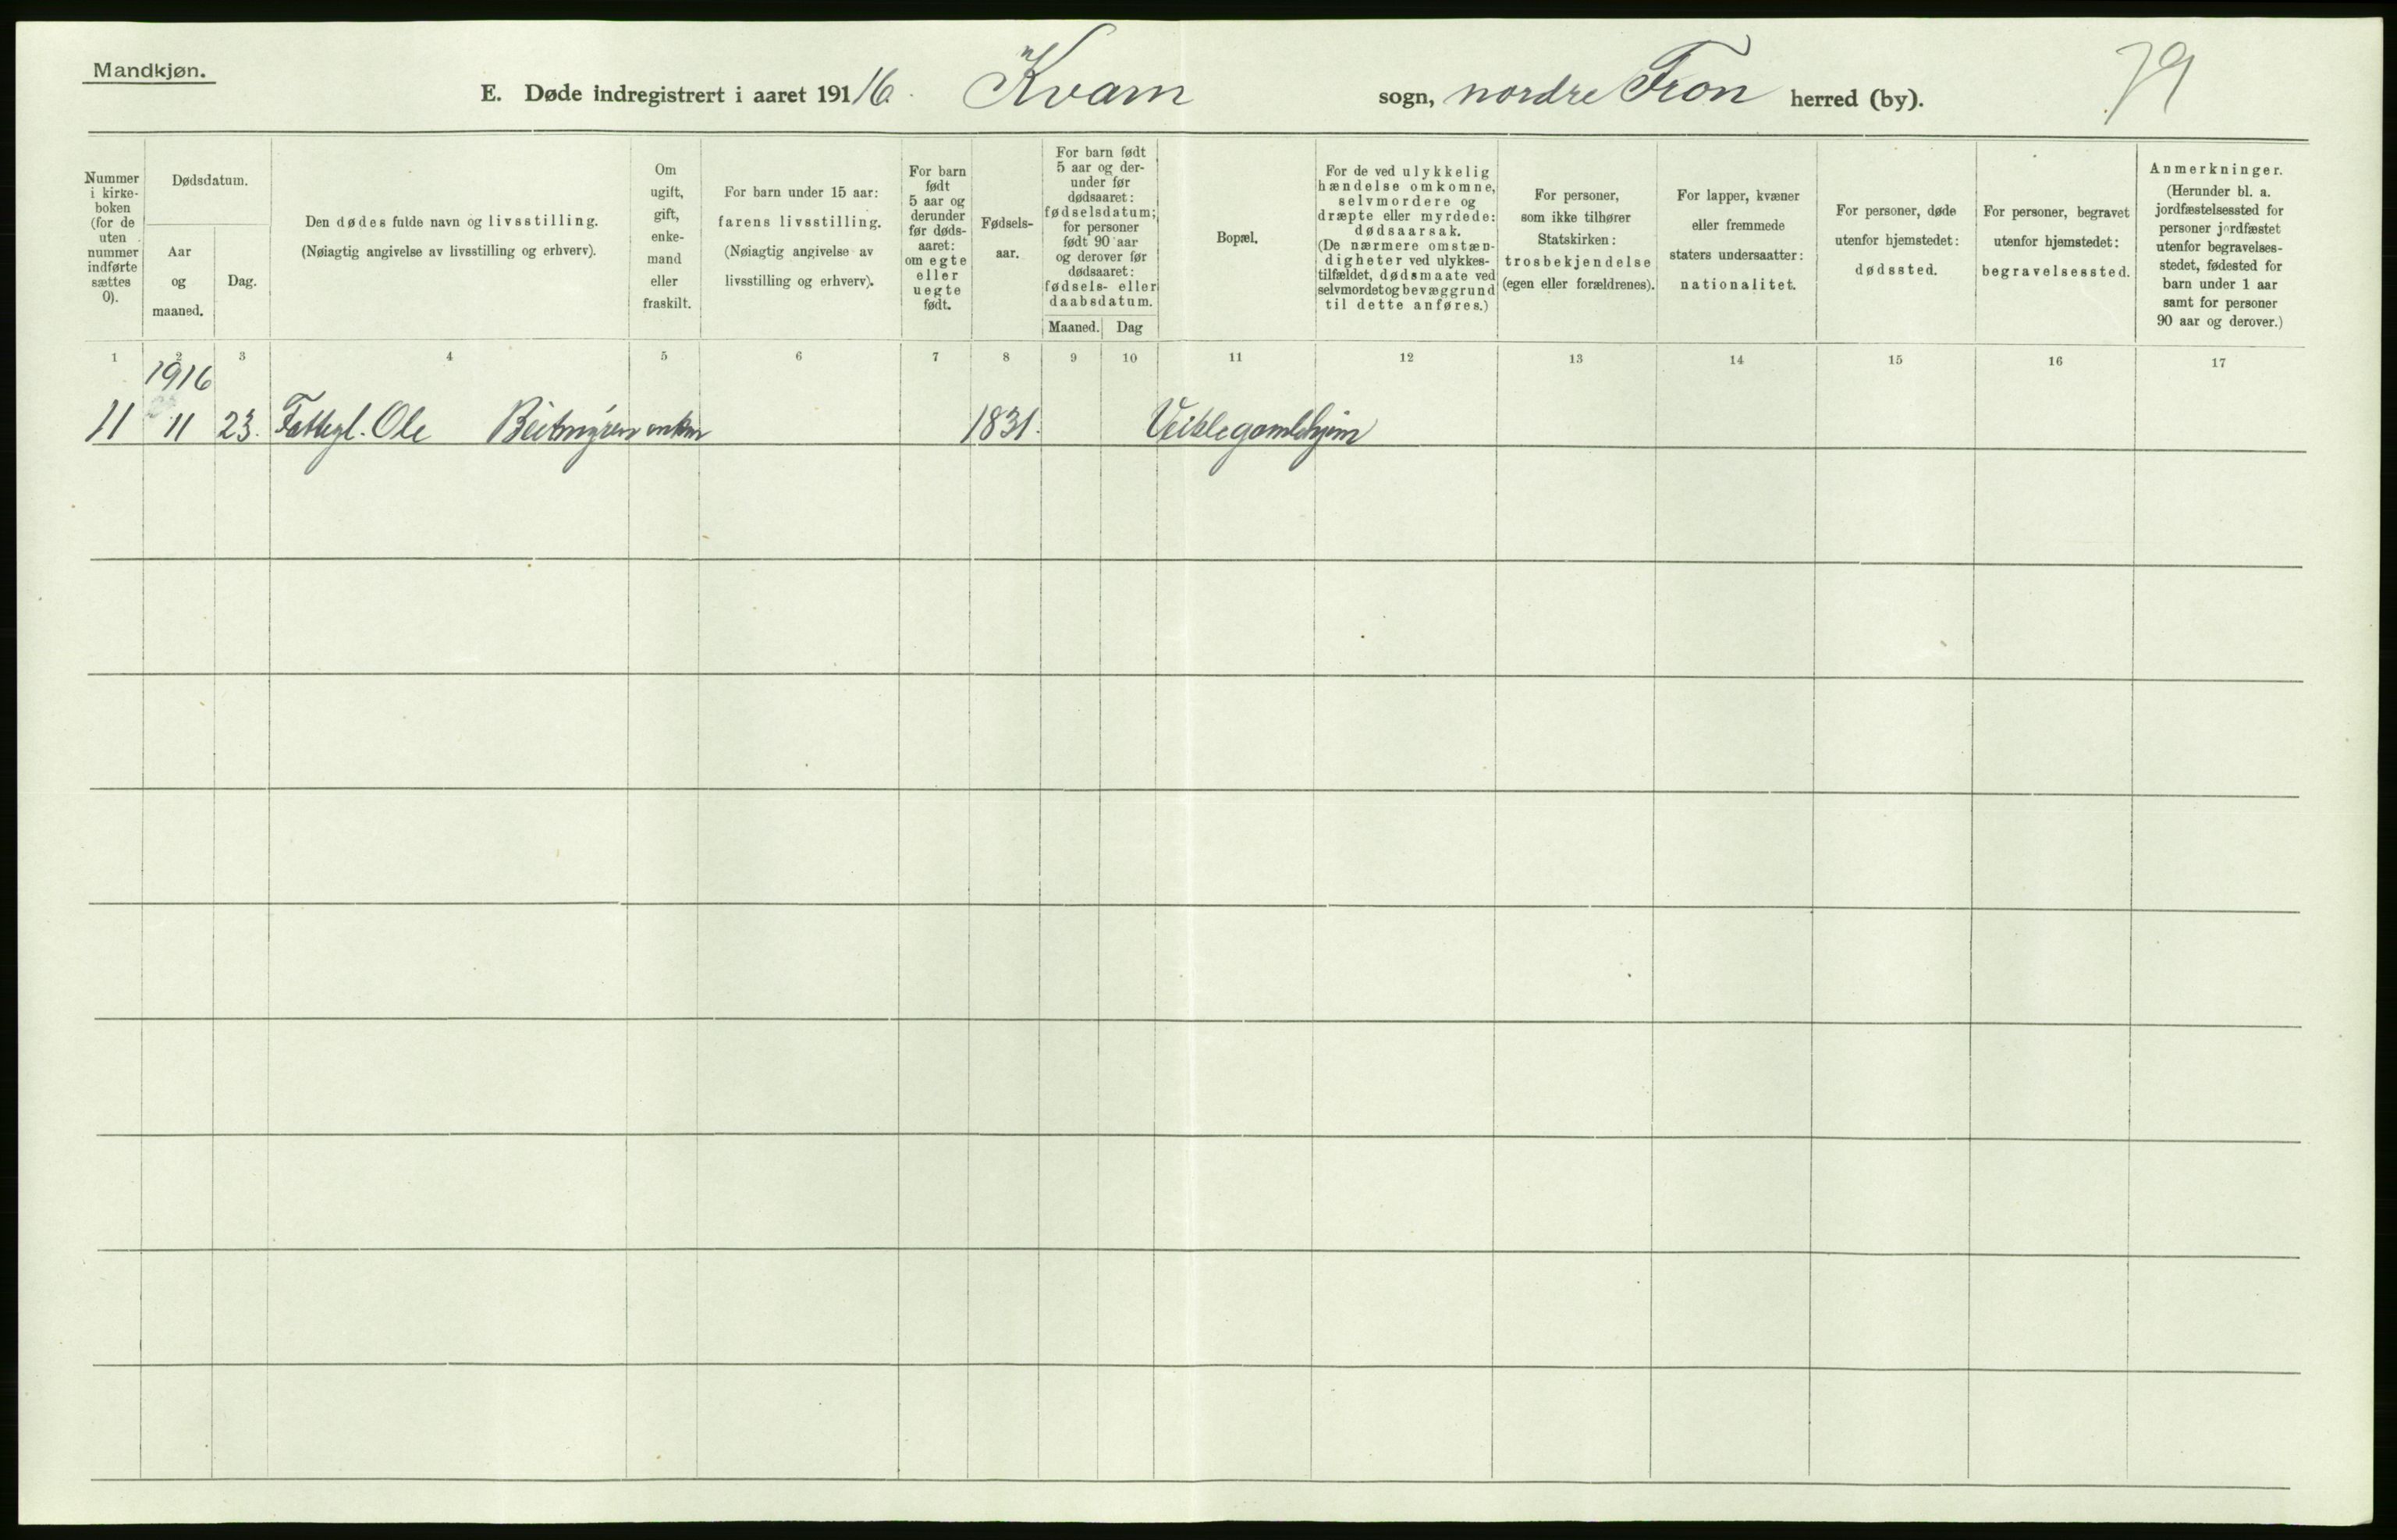 Mandkjøn.
E. Døde indregistrert i aaret 19116. Kvam sogn, nordre Fron herred (by).
79
Nummer
i kirke-
boken
(for de
uten
nummer
indførte
sættes
0).
Dødsdatum.
Aar
og
maaned.
Dag.
Den dødes fulde navn og livsstilling.
(Nøiagtig angivelse av livsstilling og erhverv).
Om
ugift,
gift,
enke-
mand
eller
fraskilt.
For barn under 15 aar:
farens livsstilling.
(Nøiagtig angivelse av
livsstilling og erhverv).
For barn
født
5 aar og
derunder
før døds-
aaret:
om egte
eller
uegte
født.
Fødsels-
aar.
For barn født
5 aar og der-
under før
dødsaaret:
fødselsdatum;
for personer
født 90 aar
og derover før
dødsaaret:
fødsels- eller
daabsdatum.
Maaned. Dag
Bopæl.
For de ved ulykkelig
hændelse omkomne,
selvmordere og
dræpte eller myrdede:
dødsaarsak.
(De nærmere omstæn-
digheter ved ulykkes-
tilfældet, dødsmaate ved
selvmordet og bevæggrund
til dette anføres.)
For personer,
som ikke tilhører
Statskirken:
trosbekjendelse
(egen eller forældrenes).
For lapper, kvæner
eller fremmede
staters undersaatter:
nationalitet.
For personer, døde
utenfor hjemstedet:
dødssted.
For personer, begravet
utenfor hjemstedet:
begravelsessted.
Anmerkninger.
(Herunder bl. a.
jordfæstelsessted for
personer jordfæstet
utenfor begravelses-
stedet, fødested for
barn under 1 aar
samt for personer
90 aar og derover.)
1 2 3 4 5 6 7 8 9 10 11 12 13 14 15 16 17
1916
11 11 23. Fattigl. Ole 1831. Veiklegamlehjem